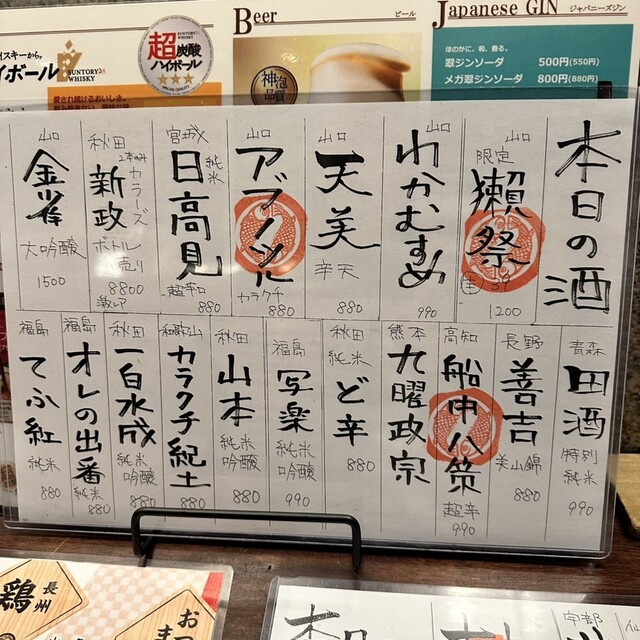 イスキーから。
イボール
SUNTORY
WHISKY
超炭酸
ハイボール
SUNTORY
WHISKY
★★★
Beer
ビール
神泡
品質
Japanese GIN
ジャパニーズジン
ほのかに、和、香る。
翠ジンソーダ 500円(550円)
メガ翠ジンソーダ 800円(880円)
本日の酒
山口
限定
獺祭
39
1200
山口
わかむすめ
990
山口
天美
辛天
880
山口
アブノツル
カラクチ
880
宮城
日高見
純米
超辛口
880
秋田
2本のみ
カラーズ
新政
ボトル
売り
8800
激レア
山口
金雀
大吟醸
1500
青森
田酒
特別
純米
990
長野
善吉
美山錦
880
高知
船中八策
超辛
990
熊本
九曜政宗
秋田
純米
ど辛
880
福島
写楽
純米
吟醸
990
秋田
山本
純米
吟醸
880
和歌山
カラクチ紀土
純米
880
秋田
一白水成
純米
吟醸
880
福島
オレの出番
純米
880
福島
てふ紅
純米
880
長州
鶏
お
まつ
宇部